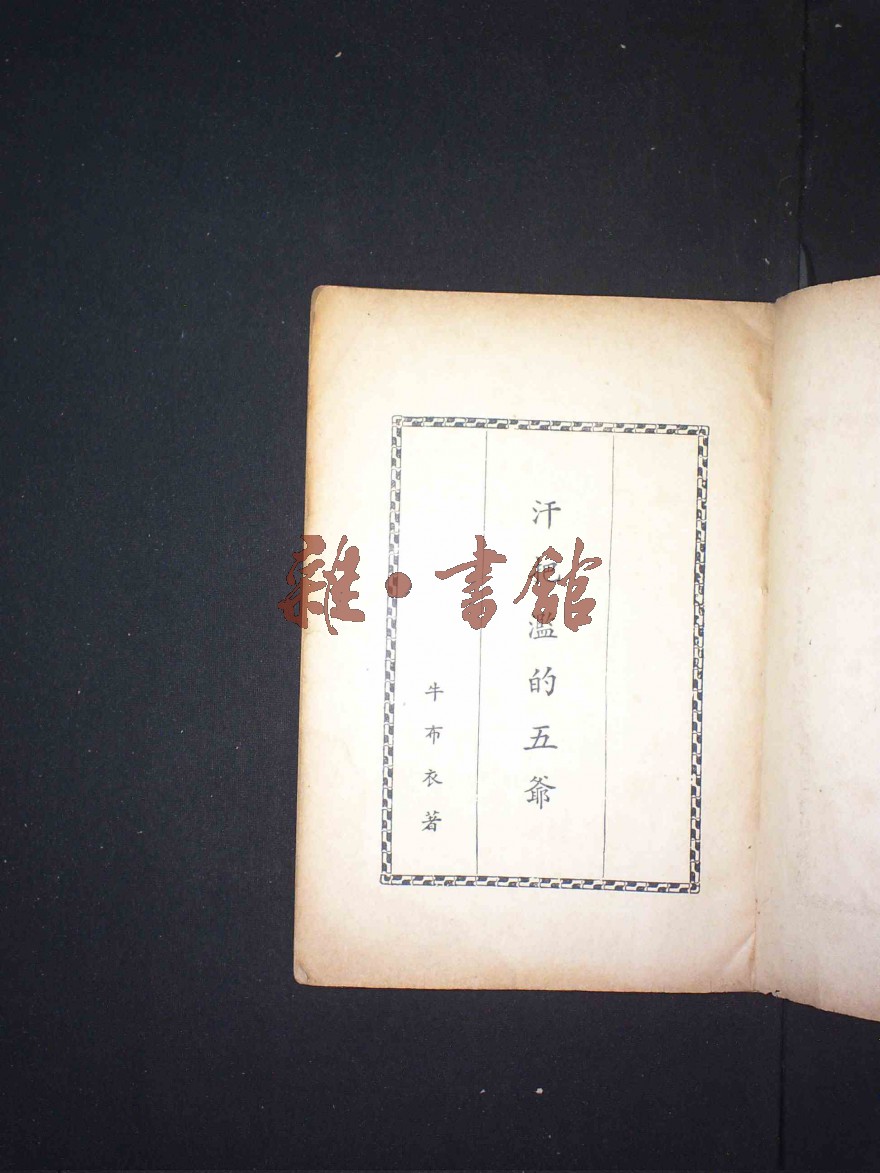 汗濫的五爺
牛布衣著
雜·書館